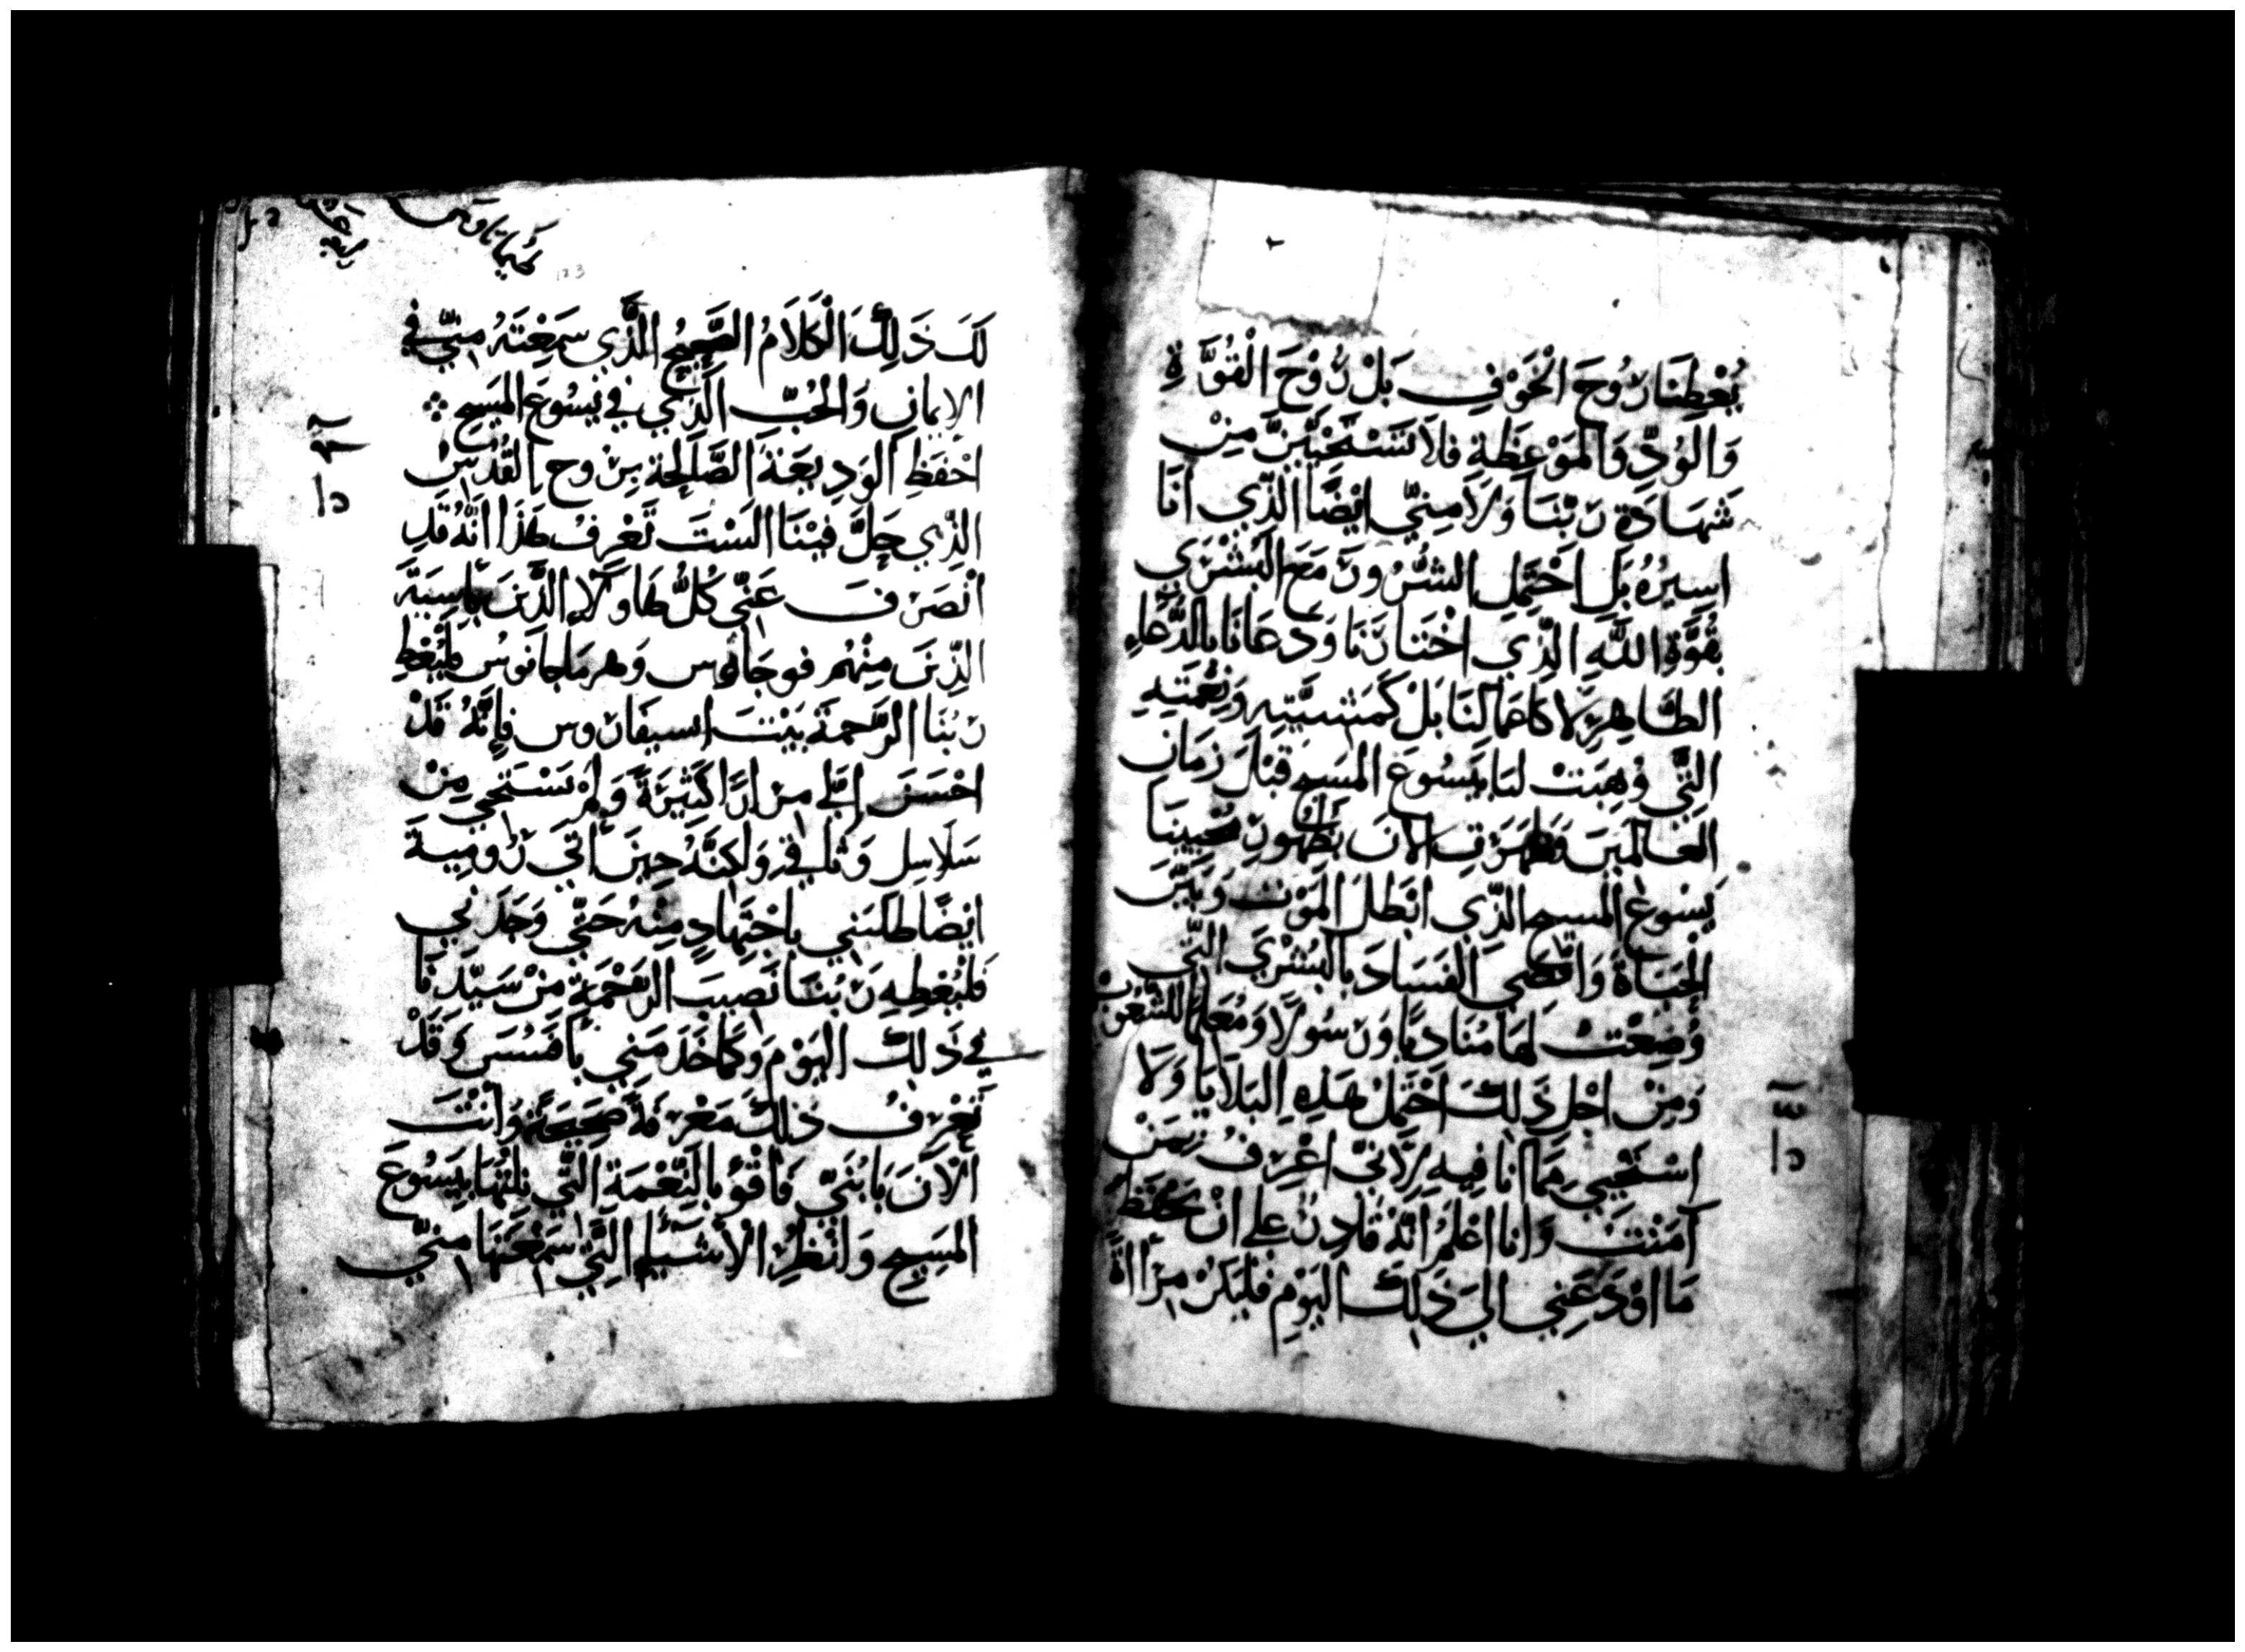 يُعْطِنَا رُوحَ الْخَوْفِ بَلْ رُوْحَ الْقُوَّةِ
وَالْوُدِّ وَالْمَوْعِظَةِ فَلَا تَسْتَحْيِيَنَّ مِنْ
شَهَادَةِ رَبِّنَا وَلَا مِنِّي ايْضًا الَّذِي أَنَا
اسِيرُهُ بَلِ احْتَمِلِ الشُّرُورَ مَعَ البُشْرَي
بِقُوَّةِ اللَّهِ الَّذِي اخْتَارَنَا وَدَعَانَا بِالدُّعَاءِ
الطَّاهِرِ لَا كَاعْمَالِنَا بَلْ كَمَشِيَّتِهِ وَنِعْمَتِهِ
الَّتِي وُهِبَتْ لَنَا بِيَسُوعَ المَسِيحِ قَبْلَ زَمَانِ
العَالَمِينَ وَظَهَرَتِ الْآنَ بِظُهُورِ مُحْيِينَا
يَسُوعَ المَسِيحِ الَّذِي ابْطَلَ المَوْتَ وَبَيَّنَ
الْحَيَاةَ وَاقْصَي الْفَسَادَ بِالْبُشْرَي الَّتِي
وُضِعْتُ لَهَا مُنَادِيًا وَرَسُولًا وَمُعَلِّمًا لِلشُّعُوبِ
وَمِنْ اجْلِ ذَلِكَ احْتَمِلُ هَذِهِ الْبَلَايَا وَلَا
اسْتَحْيِي مِمَّا انَا فِيهِ لِانِّي اعْرِفُ بِمَنْ
آمَنْتُ وَانَا اعْلَمُ انَّهُ قَادِرٌ عَلى انْ يَحْفَظَ
مَا اوْدَعَنِي الَي ذَلِكَ الْيَوْمِ فَلْيَكُنْ مِرْآاةً
كـ
لَكَ ذَلِكَ الْكَلَامُ الصَّحِيحُ الَّذِي سَمِعْتَهُ مِنِّي فِي
الايمانِ وَالْحُبِّ الَّذِي فِي يَسُوعَ المَسِيحِ ܀
احْفَظِ الْوَدِيعَةَ الصَّالِحَةَ بِرُوحِ الْقُدُسِ
الَّذِي حَلَّ فِيْنَا السْتَ تَعْرِفُ هَذَا انَّهُ قَدِ
انْصَرَفَ عَنِّي كُلُّ هَاوُلَاءِ الَّذِينَ بِأَسِيَةَ
الَّذِينَ مِنْهُم فوجَالوس وَهرمَاجانوس فَلْيُعْطِ
رَبُّنَا الرَّحْمَةَ بَيْتَ اسيفَاروس فَإِنَّهُ قَدْ
احْسَنَ إِلَيَّ مِرَارًا كَثِيرَةً وَلَمْ يَسْتَحْيِ مِنْ
سَلَاسِلِ وَثَاقِي وَلَكِنَّهُ حِينَ أتَي رُومِيةَ
ايْضًا طَلَبَنِي باجْتِهَادٍ مِنْهُ حَتَّي وَجَدَنِي
فَلْيُعْطِهِ رَبُّنَا نَصِيبَ الرَّحْمَةِ مِنْ سَيِّدِنَا
فِي ذَلِكَ الْيَوْمِ وَكَمَا خَدَمَنِي بِأَفَسُسَ وَقَدْ
تَعْرِفُ ذَلِكَ مَعْرِفَةً صَحِيحَةً وَانْتَ
الْآنَ يَا بُنَيَّ فَاقْوَ بِالنِّعْمَةِ الَّتِي نِلْتَهَا بِيَسُوعَ
المَسِيحِ وَانْظُرِ الْأَشْيَاءَ الَّتِي سَمِعْتَهَا مِنِّي